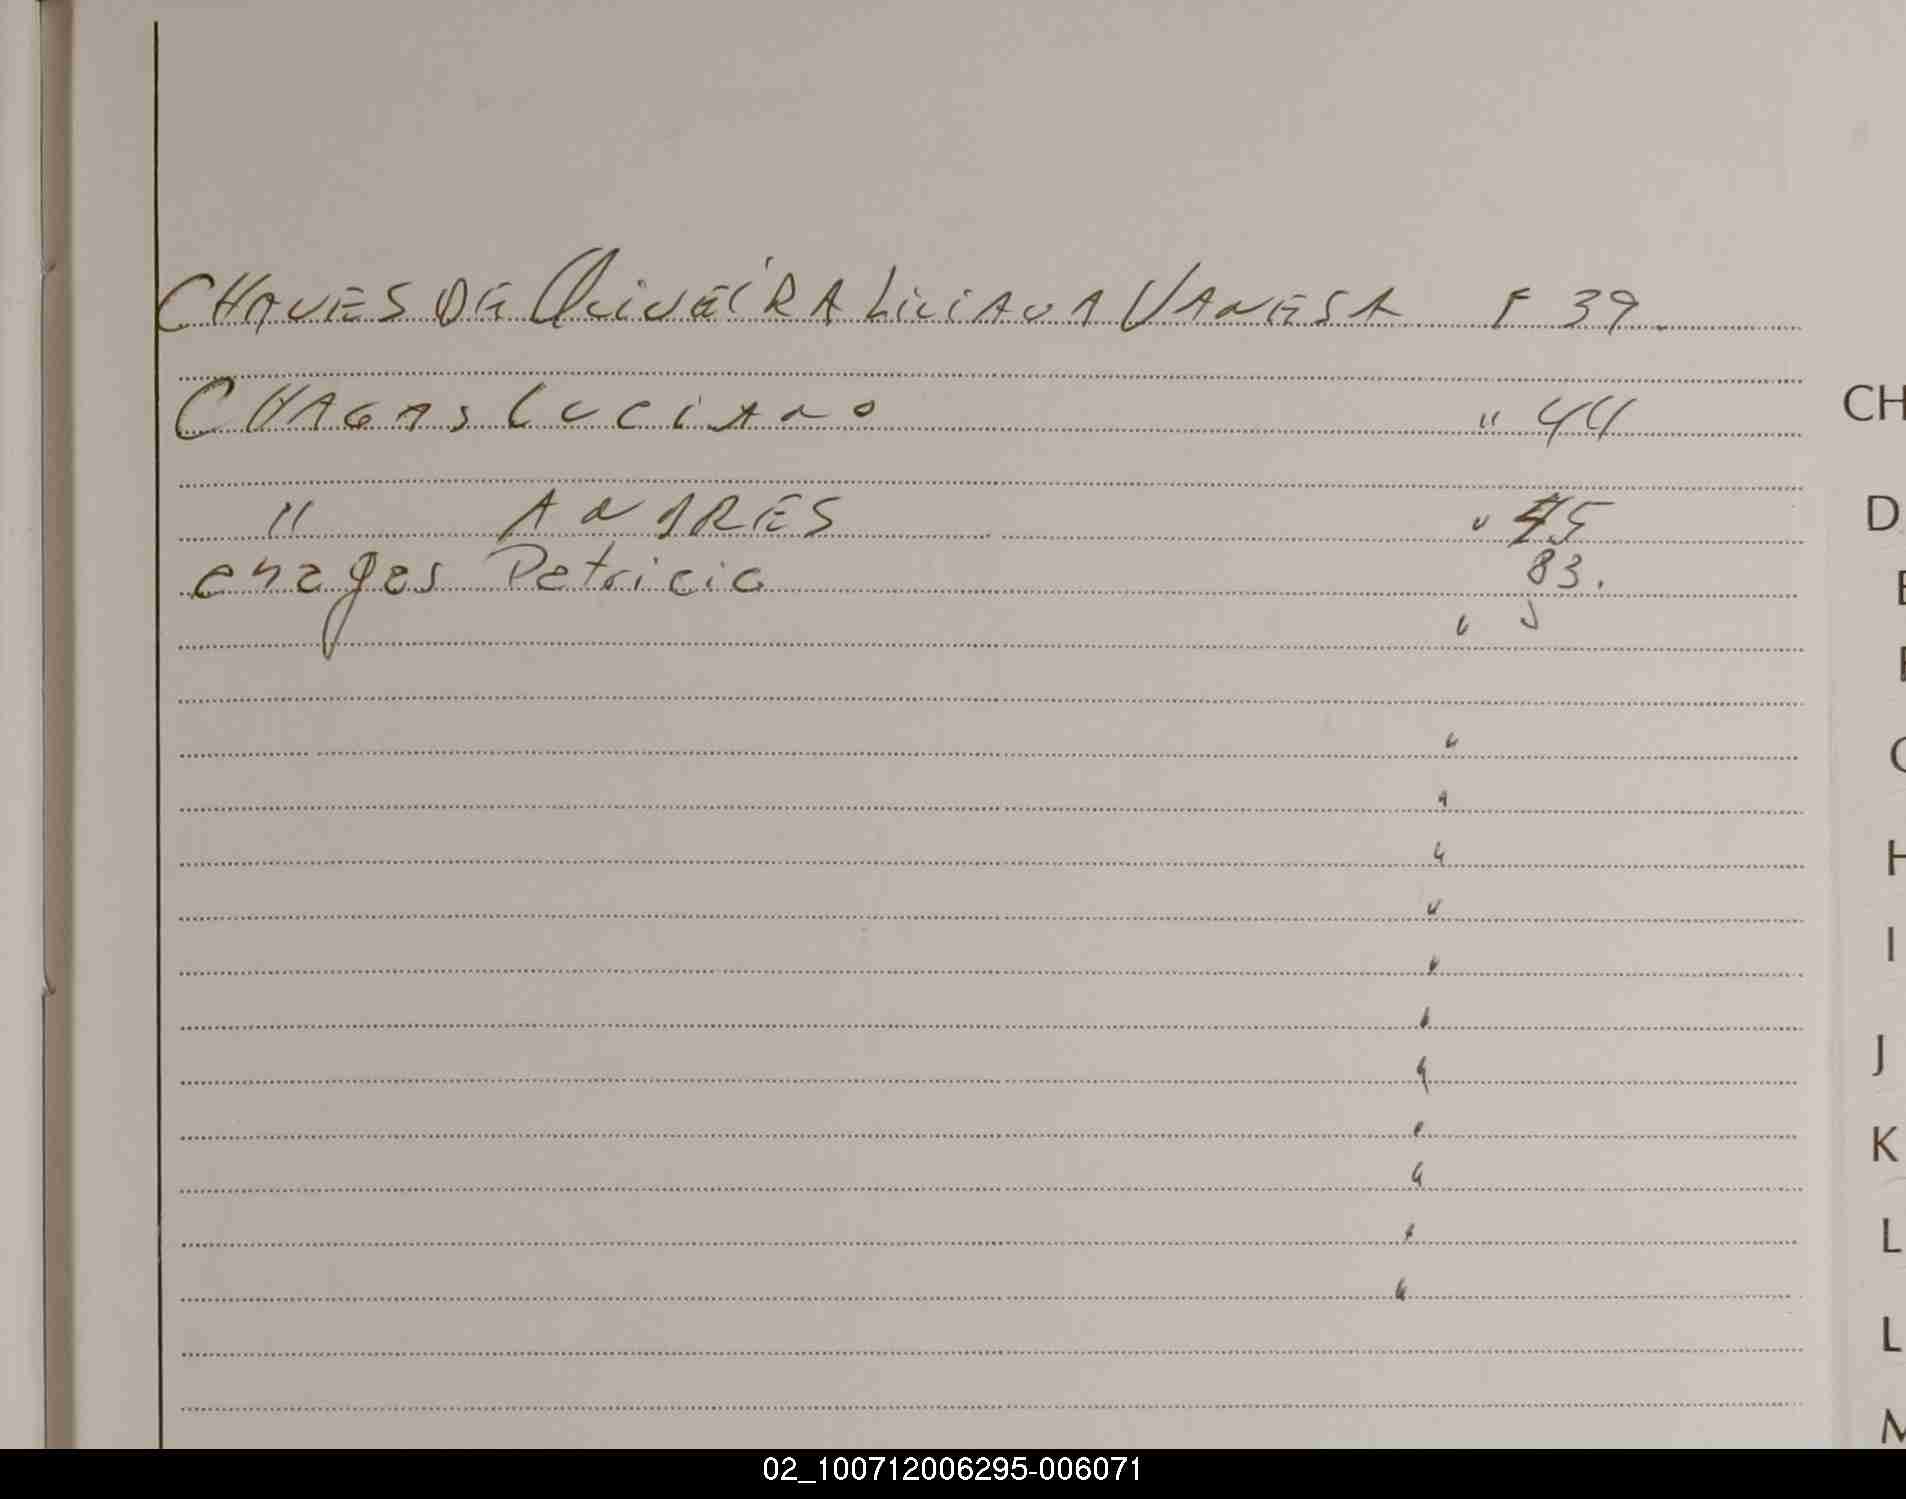 CHAVES DE OLIVEIRA LILIANA VANESA F 39.
CHAGAS LUCIANO " 44
" ANDRES " 45
chages Patricia 83.
CH
D
E
E
G
H
I
J
K
L
L
M
02_100712006295-006071